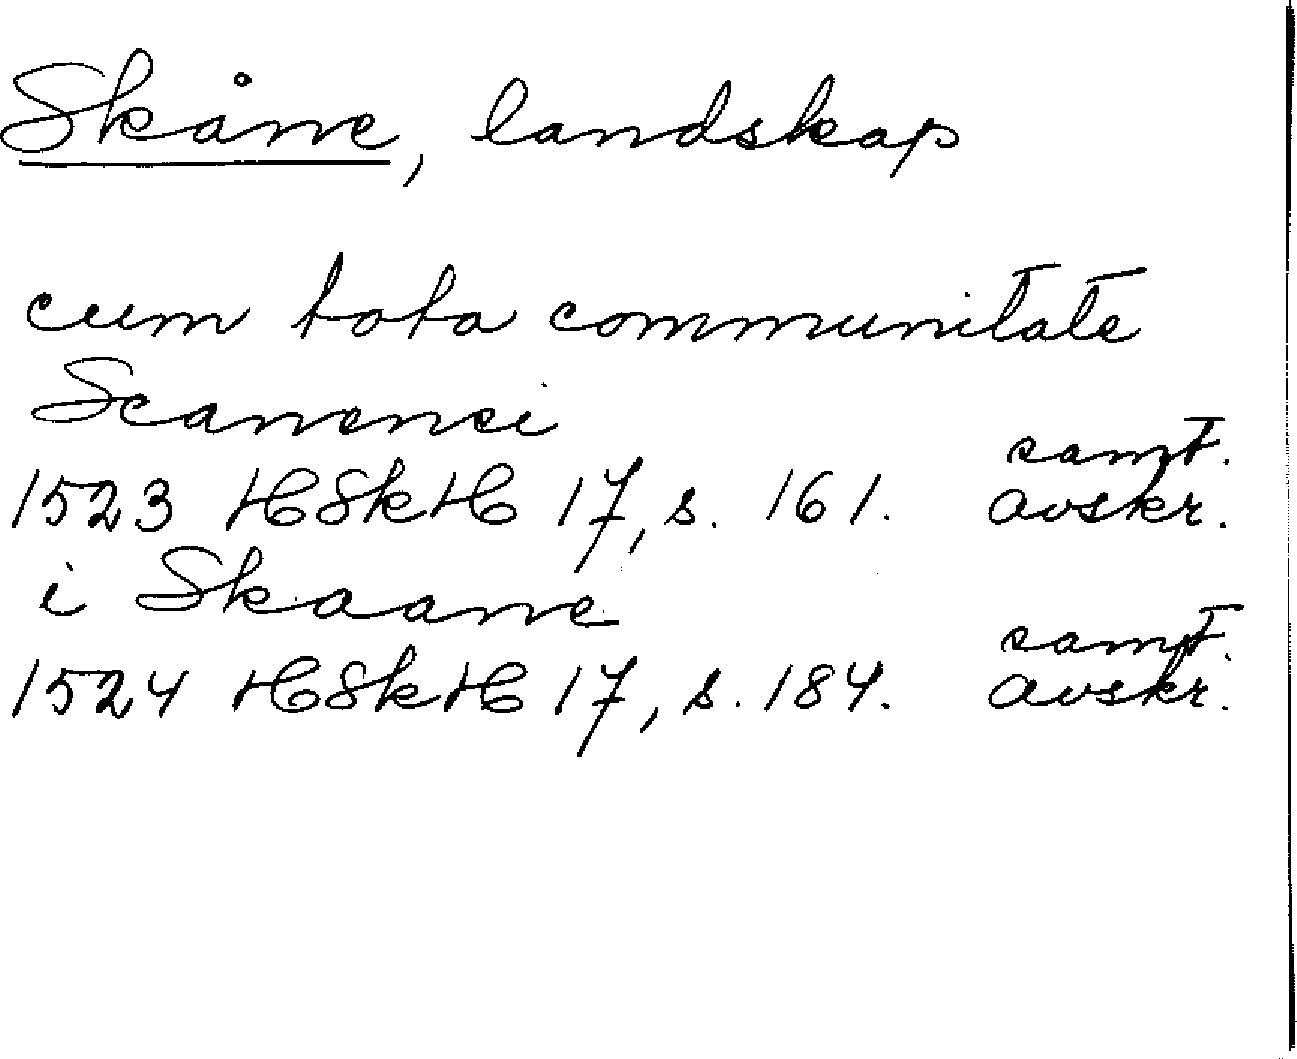 Skåne, landskap
cum tota communitate
Scanenci
samt.
1523 HSkH 17, s. 161. avskr.
i Skaane
samt.
1524 HSkH 17, s. 184. avskr.